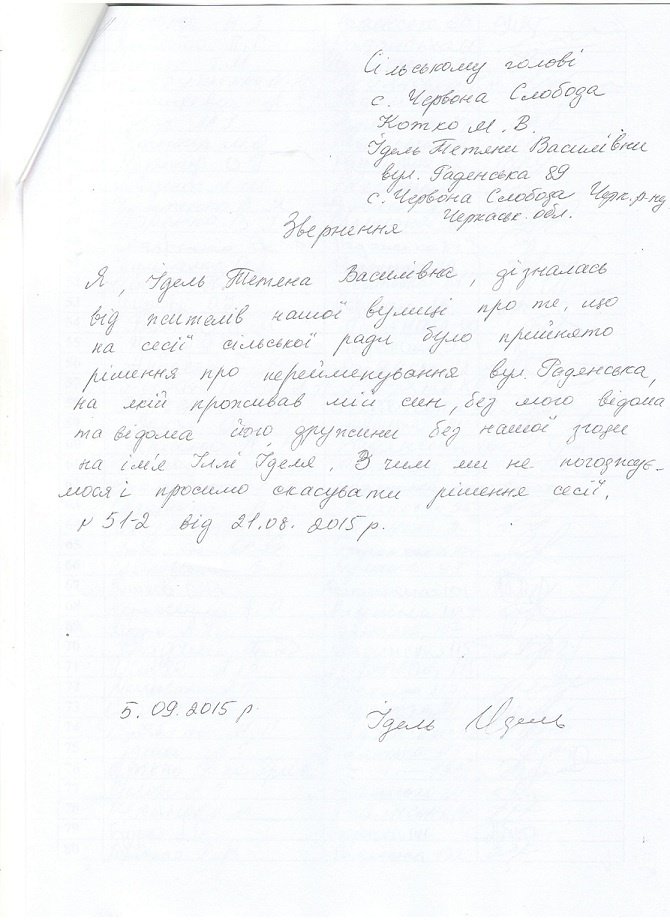 Сільському голові
с. Червона Слобода
Котко М. В.
Ідель Тетяни Василівни
вул. Гаденська 89
с. Червона Слобода Черк. р-ну
Черкаськ. обл.
Звернення
Я, Ідель Тетяна Василівна, дізналась
від жителів нашої вулиці про те, що
на сесії сільської ради було прийнято
рішення про перейменування вул. Гадянська,
на якій проживав мій син, без мого відома
та відома його дружини без нашої згоди
на ім'я Іллі Іделя. В чим ми не погоджує-
мося і просимо скасувати рішення сесії.
№ 51-2 від 21.08. 2015 р.
5. 09. 2015 р.
Ідель Ідель